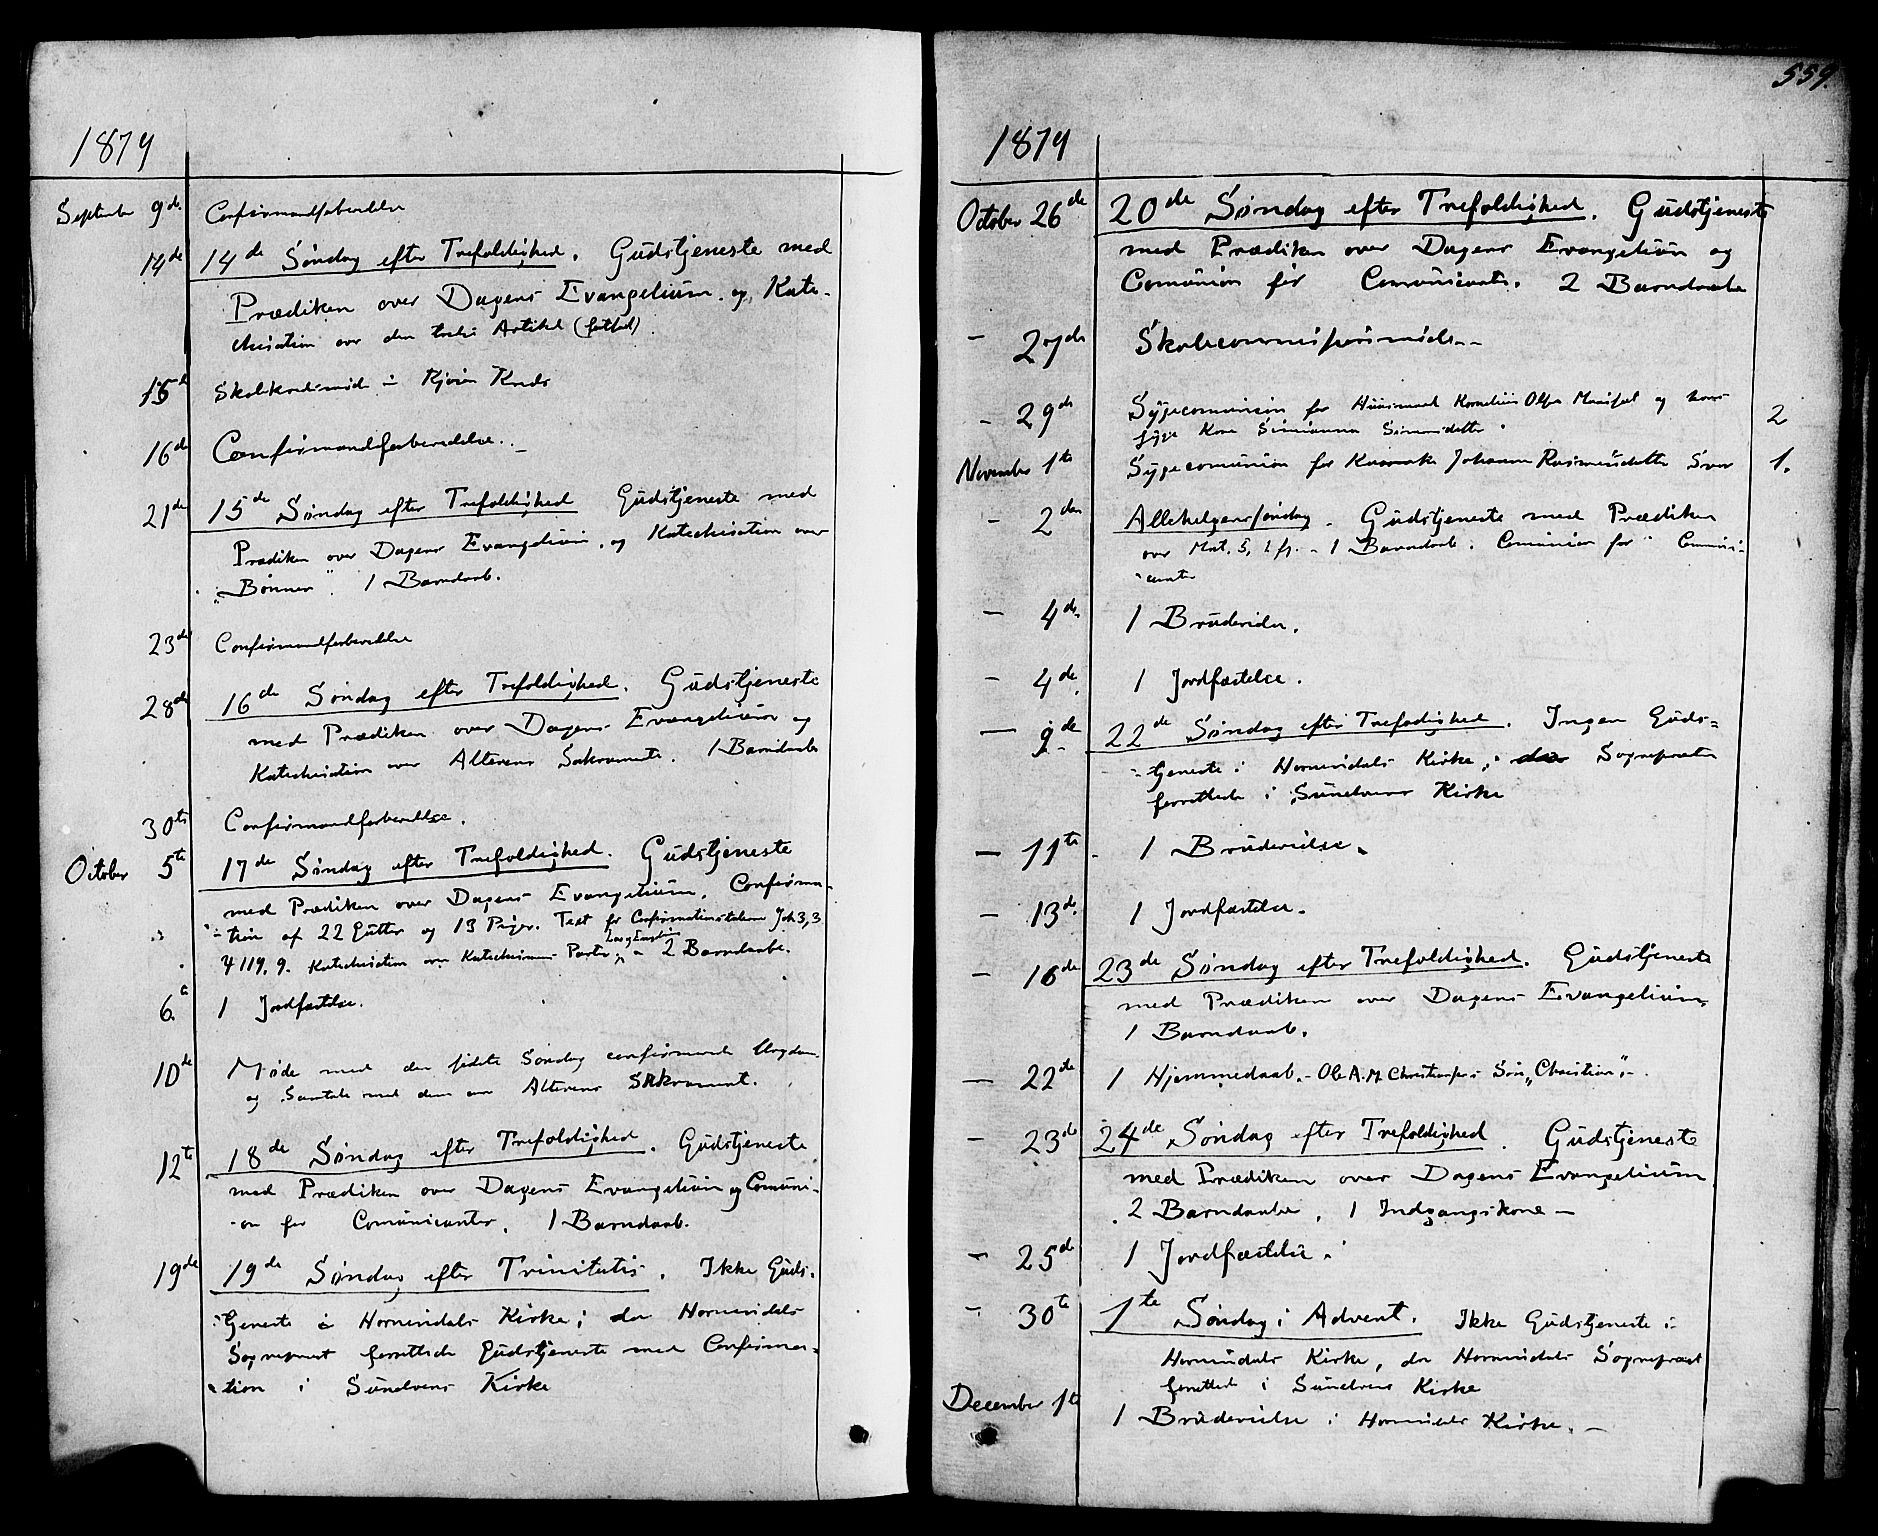 1879
September 9de Confirmandforberedelse
14de 14de Søndag efter Trefoldighed. Gudstjeneste med
Prædiken over Dagens Evangelium. og Kate-
chisation over den tredie Artikel
15de i
16de Confirmandforberedelse.
21de 15de Søndag efter Trefoldighed Gudstjeneste med
Prædiken over Dagens Evangelium, og Katechisation over
„Bønnen". 1 Barndaab.
23de Confirmandforberedelse
28de 16de Søndag efter Trefoldighed. Gudstjeneste
med Prædiken over Dagens Evangelium og
Katechisation over Alterens Sakramente. 1 Barndaab
30te Confirmandforberedelse.
October 5te 17de Søndag efter Trefoldighed. Gudstjeneste
med Prædiken over Dagens Evangelium. Confirma-
tion af 22 Gutter og 13 Piger. Text for Confirmationstalen Joh 3,3
119, 9. Katechisation over Katechismens Parter 2 Barndaabe.
6te 1 Jordfæstelse.
10de Møde med den sidste Søndag confirmerede Ungdom
og Samtale med dem om Alterens Sakrament.
12te 18de Søndag efter Trefoldighed. Gudstjeneste
med Prædiken over Dagens Evangelium og Comuni-
on for Comunicanter. 1 Barndaab.
19de 19de Søndag efter Trinitatis. Ikke Guds-
tjeneste i Hornindals Kirke; da Hornindals
Sognepræst forrettede Gudstjeneste med Confirma-
tion i Sundvens Kirke
559.
1879
October 26de 20de Søndag efter Trefoldighed. Gudstjeneste
med Prædiken over Dagens Evangelium og
Comunion for Comunicanter. 2 Barndaabe
- 27de Skolecommissionsmøde.-
- 29de Sygecomunion for Huusmand Kornelius Olsen og hans
syge Kone 2
November 1te Sygecomunion for Johanne Rasmusdatter 1.
- 2den Allehelgenssøndag. Gudstjeneste med Prædiken
over Mat. 5, 1 fg. - 1 Barndaab. Comunion for " Comuni-
canter
- 4de 1 Brudevielse.
- 4de 1 Jordfæstelse.
- 9de 22de Søndag efter Trefodighed. Ingen Guds-
tjeneste i Hornindals Kirke, da Sognepræsten
forrettede i Sundvens Kirke
- 11te 1 Brudevielse.
- 13de 1 Jordfæstelse.
- 16de 23de Søndag efter Trefoldighed. Gudstjeneste
med Prædiken over Dagens Evangelium.
1 Barndaab.
- 22de 1 Hjemmedaab. - Ole A. M. Søn „Christian".-
- 23de 24de Søndag efter Trefoldighed. Gudstjeneste
med Prædiken over Dagens Evangelium
2 Barndaabe, 1 Indgangskone -
- 25de 1 Jordfæstelse.
- 30te 1te Søndag i Advent. Ikke Gudstjeneste i
Hornindals Kirke, da Hornindals Sognepræst
forrettede i Sundvens Kirke
December 1te 1 Brudevielse i Hornindals Kirke. -